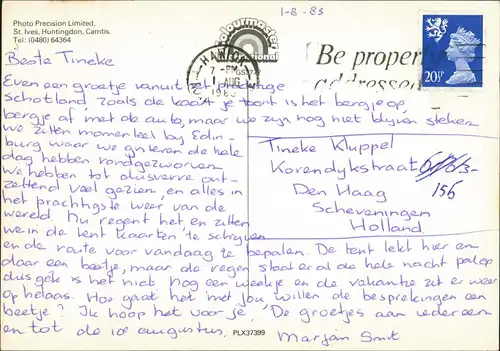 Photo Precision Limited,
St. Ives, Huntingdon, Cambs.
Tel: (0480) 64364
1-8-83
colourmaster
international
7 - PM
1 AUG
1983
Be properly
addressed
20½P
Beste Tineke
Even een groetje vanuit het prachtige
Schotland zoals de kaart je toont is het bergje op,
bergje af met de auto, maar we zijn nog niet blijven steken
We zitten momenteel bij Edin-
burg waar we gisteren de hele
dag hebben rondgezworven
We hebben tot dusverre ont-
zettend veel gezien en alles in
het prachtigste weer van de
wereld. Nu regent het en zitten
we in de tent kaarten te schrijven
en de route voor vandaag te bepalen. De tent lekt hier en
daar een beetje, maar de regen staat er al de hele nacht pal op
dus gek is het niet. Nog een weekje en de vakantie zit er weer
op helaas. Hoe gaat het met jou willen de besprekingen een
beetje? Ik hoop het voor je. De groetjes aan iedereen
en tot de 10e augustus.
Marjan Smit
Tineke Kluppel
Korendykstraat
156
Den Haag
Scheveningen
Holland
PLX37399